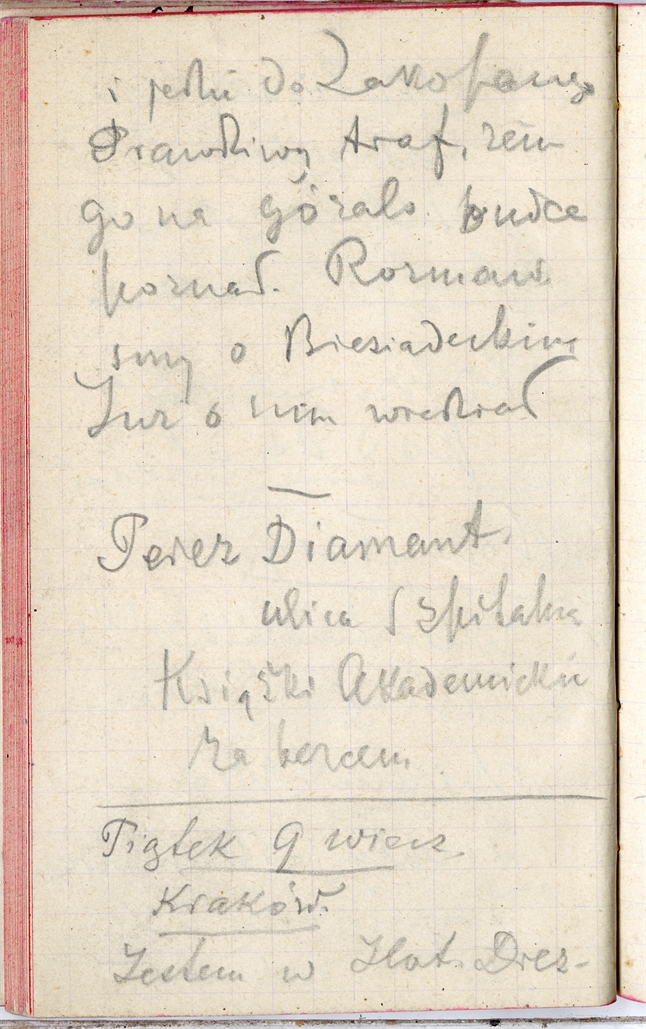 i jedzie do Zakopanego
Prawdziwy traf, żem
go na górale
poznał. Rozmawia
śmy o Biesiadeckim
Już o nim wiedział
—
Perez Diamant.
ulica Szpitalna
Książki Akademickie
za bezcen.
Piątek 9 wiecz.
Kraków.
Jestem w Hot. Drez-